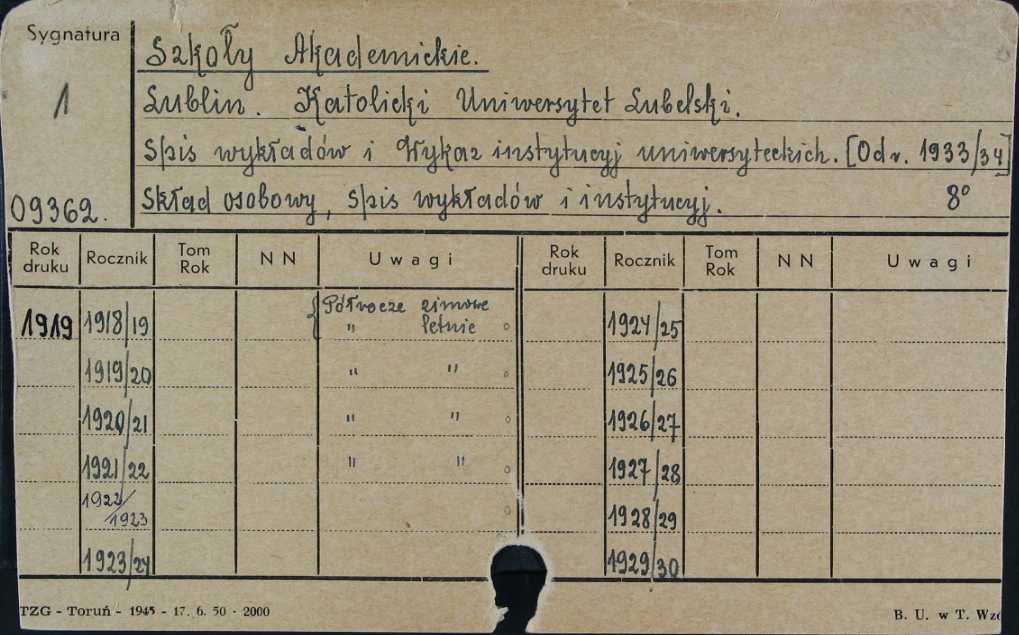 Sygnatura
1
09362.
Szkoły Akademickie.
Lublin. Katolicki Uniwersytet Lubelski.
Spis wykładów i Wykaz instytucyj uniwersyteckich. [Od r. 1933/34]
Skład osobowy, spis wykładów i instytucyj. 8°
Rok druku Rocznik Tom Rok NN Uwagi Rok druku Rocznik Tom Rok NN Uwagi
1919 1918/19 { Półrocze zimowe 1924/25
" letnie
1919/20 " " 1925/26
1920/21 " " 1926/27
1921/22 " " 1927/28
1922/1923 1928/29
1923/24 1929/30
TZG - Toruń - 1945 - 17. 6. 50 - 2000 B. U. w T.